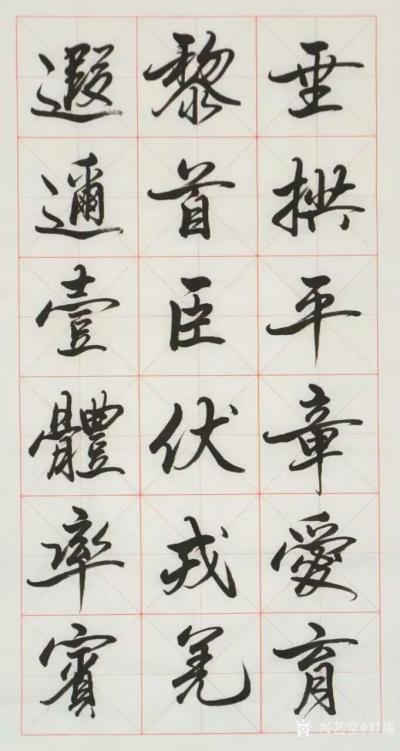 垂拱平章愛育
黎首臣伏戎羌
遐邇壹體率賓
兴艺堂@祥瑞